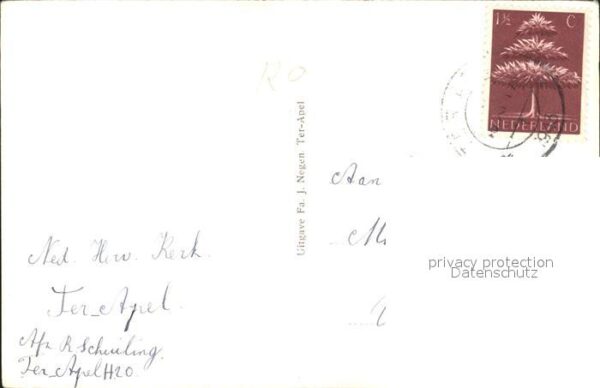 1½ C
NEDERLAND
RO
Uitgave Fa. J. Negen. Ter-Apel
Aan
M
privacy protection
Datenschutz
Ned. Herv. Kerk.
Ter-Apel.
Afz R Scheuling
Ter-Apel H20